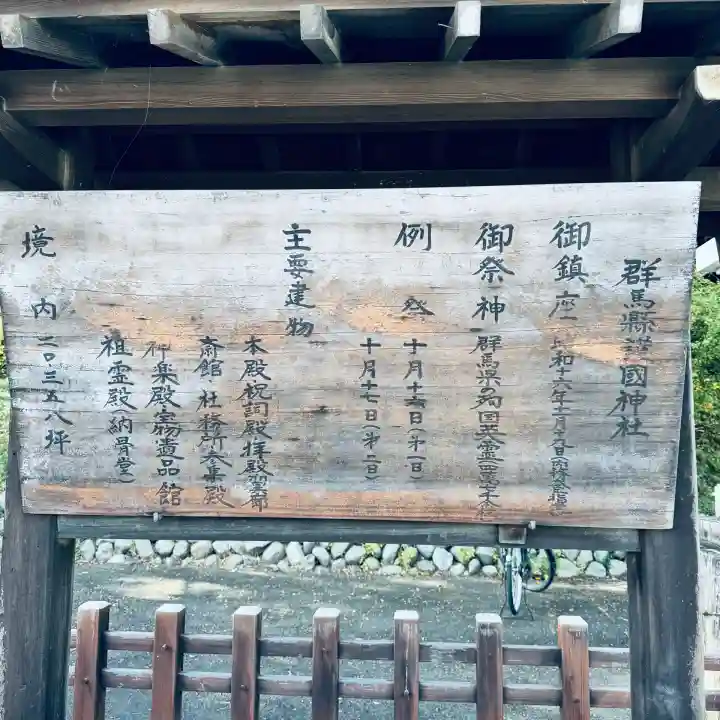 群馬縣護國神社
御鎮座 昭和十六年十一月十九日
御祭神 群馬県の殉国英霊
例祭 十月十六日(第一日)
十月十七日(第二日)
主要建物
本殿祝詞殿拝殿
斎館 社務所参集殿
神楽殿宝物遺品館
祖霊殿(納骨堂)
境内 二〇三五八坪